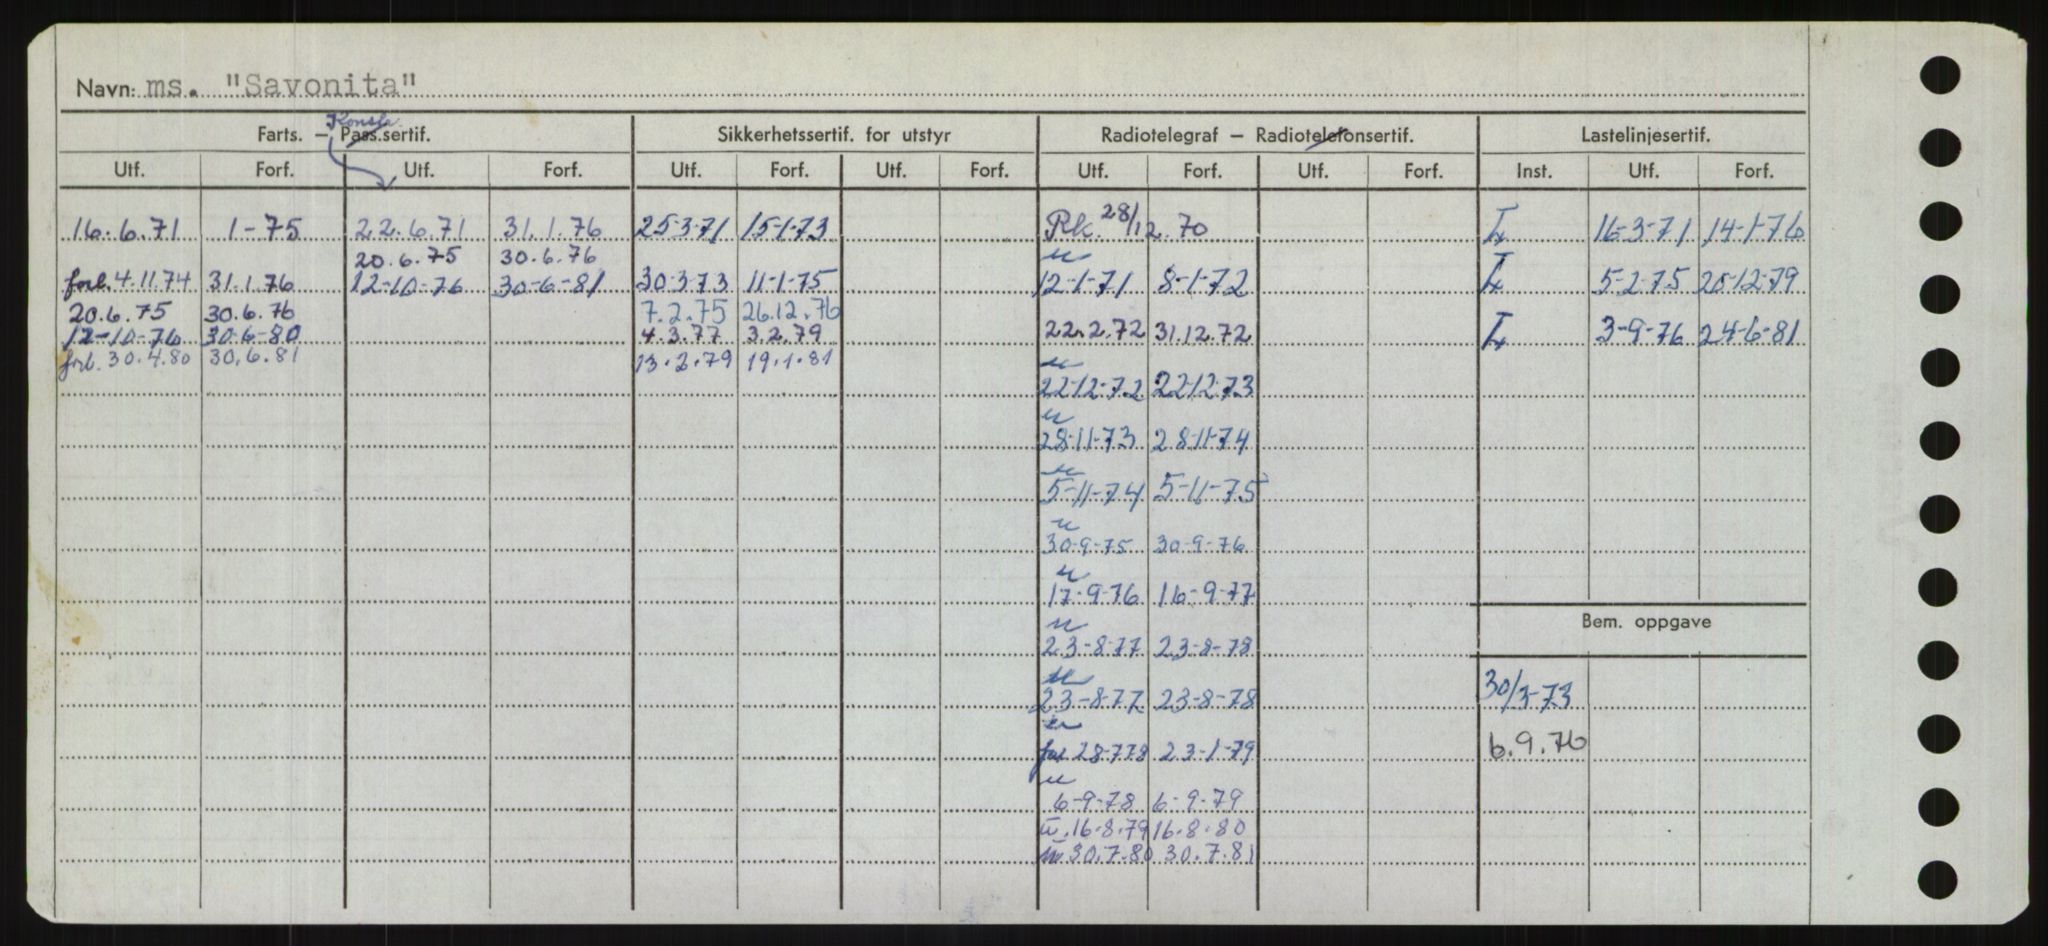 Navn: ms. "Savonita"
Konstr.
Farts. – Pass.sertif. Sikkerhetssertif. for utstyr Radiotelegraf – Radiotelefonsertif. Lastelinjesertif.
Utf. Forf. Utf. Forf. Utf. Forf. Utf. Forf. Utf. Forf. Utf. Forf. Inst. Utf. Forf.
16.6.71 1-75 22.6.71 31.1.76 25-3-71 15-1-73 Rk. 28/12.70 L 16-3-71 14-1-76
20.6.75 30.6.76 u
forl. 4.11.74 31.1.76 12-10-76 30-6-81 30-3-73 11-1-75 12-1-71 8-1-72 L 5-2-75 20-12-79
20.6.75 30.6.76 7.2.75 26.12.76
12-10-76 30-6-80 4.3.77 3.2.79 22.2.72 31.12.72 L 3-9-76 24-6-81
forl. 30.4.80 30.6.81 13.2.79 19.1.81 u
22-12-72 22-12-73
u
28-11-73 28-11-74
u
5-11-74 5-11-75
u
30-9-75 30-9-76
u
17-9-76 16-9-77
Bem. oppgave
u
23-8-77 23-8-78
u
23-8-77 23-8-78 30/3-73
u
forl 28-7-78 23-1-79 6.9.76
u
6-9-78 6-9-79
u. 16-8-79 16-8-80
u 30.7.80 30.7.81